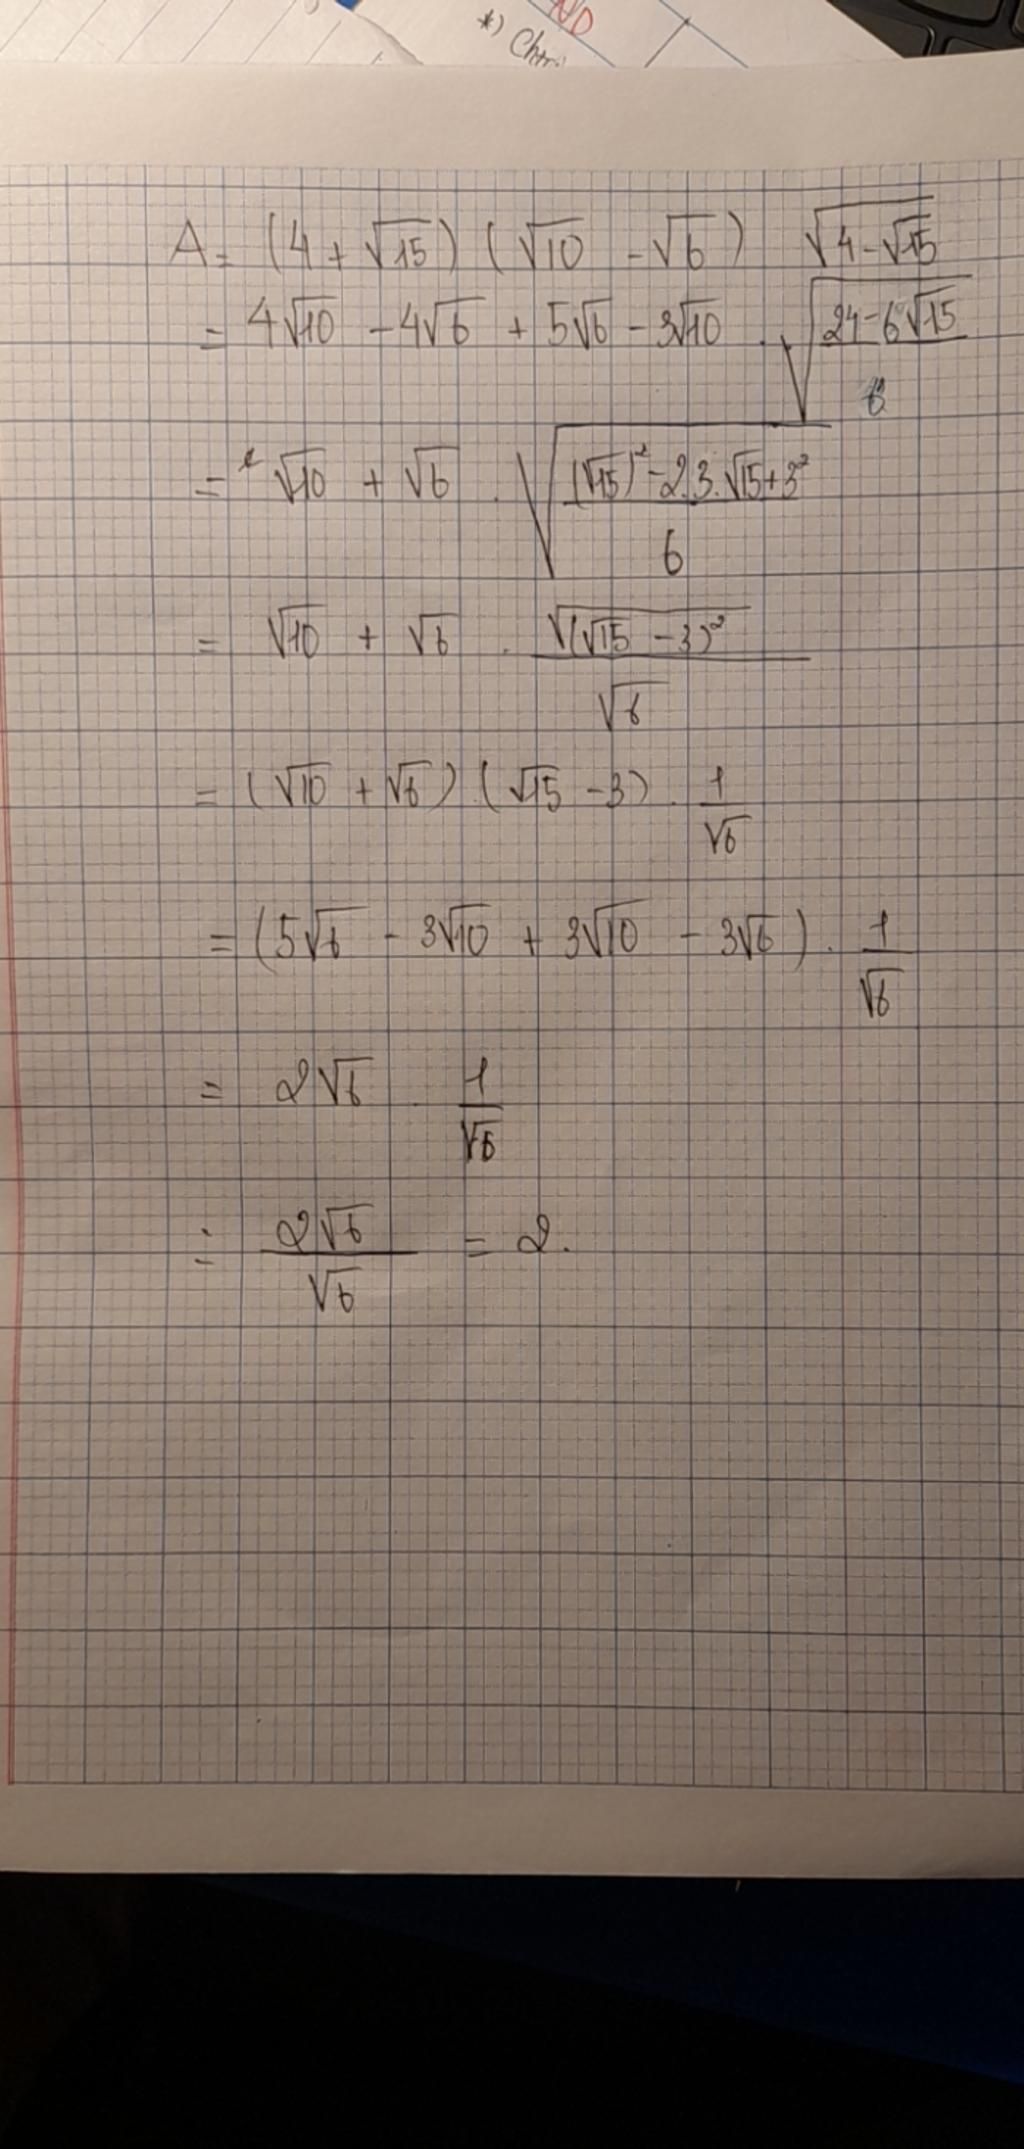 ND
*)
A = (4 + √15) (√10 - √6) √(4 - √15)
= 4√10 - 4√6 + 5√6 - 3√10 . √((24 - 6√15)/6)
= √10 + √6 . √(((√15)² - 2.3.√15 + 3²)/6)
= √10 + √6 . √((√15 - 3)²)/√6
= (√10 + √6) (√15 - 3) . 1/√6
= (5√6 - 3√10 + 3√10 - 3√6) . 1/√6
= 2√6 . 1/√6
= 2√6/√6 = 2.